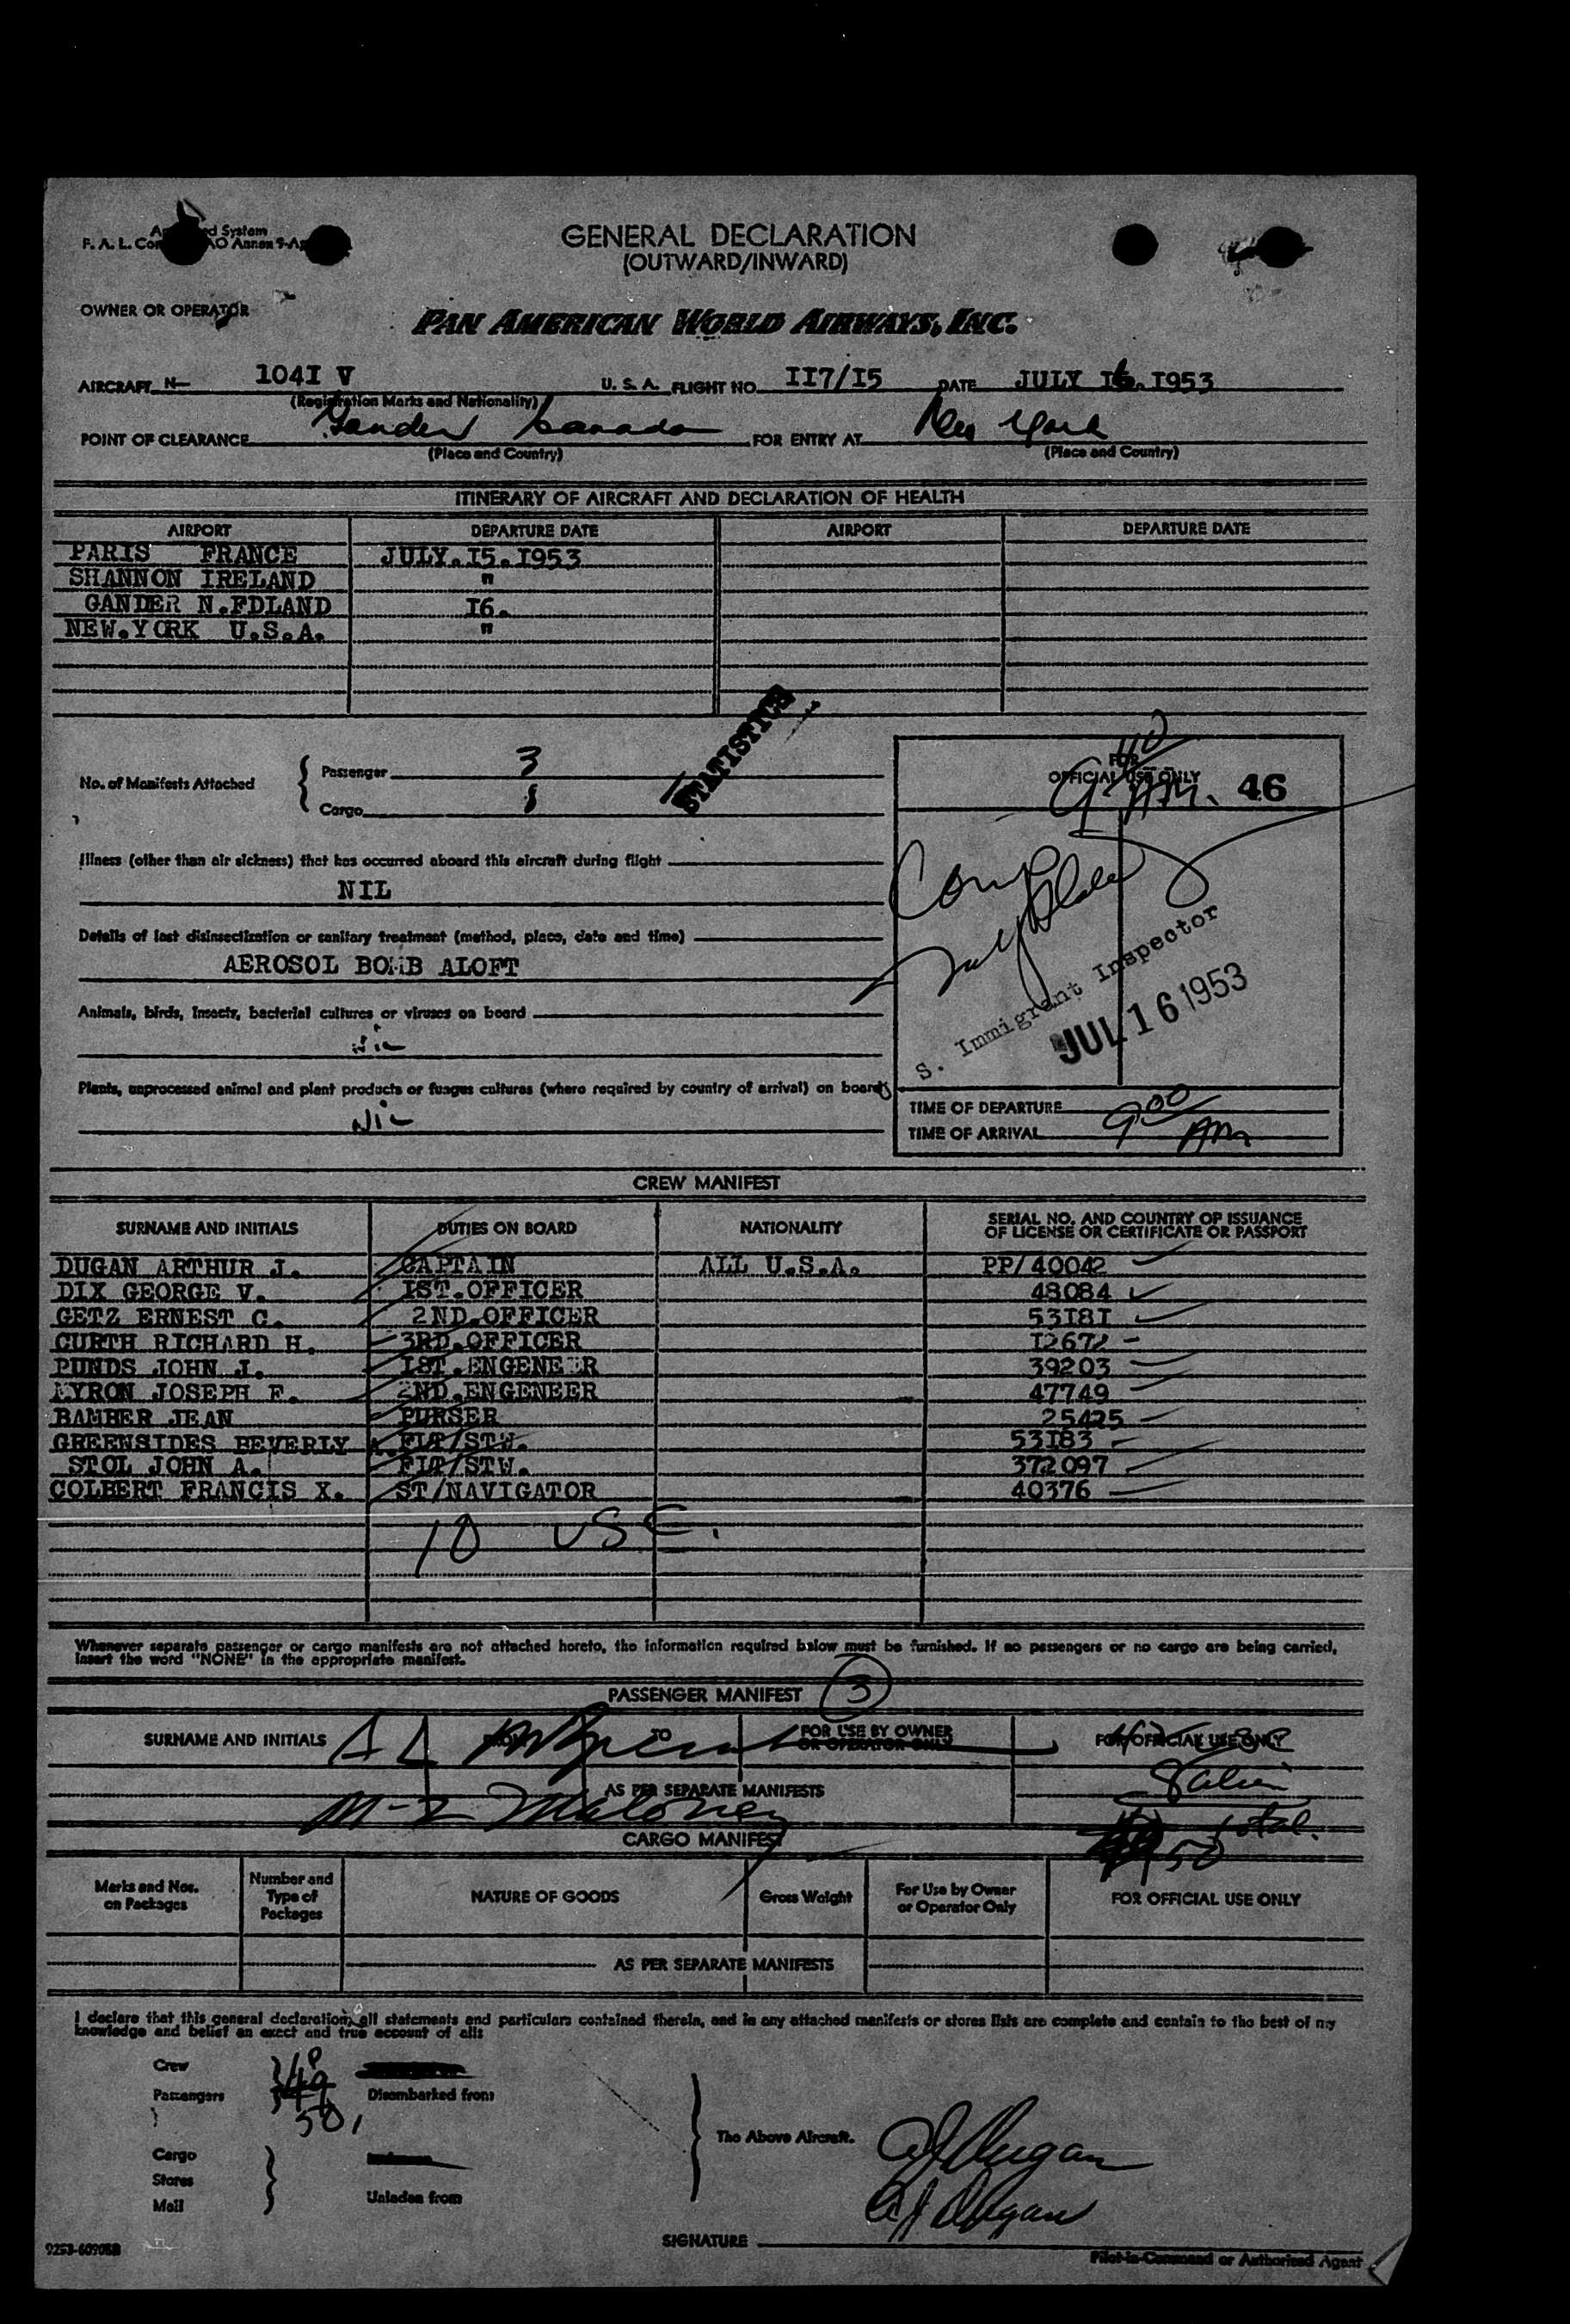 GENERAL DECLARATION
(OUTWARD/INWARD)
OWNER OR OPERATOR
PAN AMERICAN WORLD AIRWAYS, INC.
AIRCRAFT N— 104I V U. S. A. FLIGHT NO. II7/I5 DATE JULY I6. I953
(Registration Marks and Nationality)
POINT OF CLEARANCE Gander Canada FOR ENTRY AT New York
(Place and Country) (Place and Country)
ITINERARY OF AIRCRAFT AND DECLARATION OF HEALTH
AIRPORT DEPARTURE DATE AIRPORT DEPARTURE DATE
PARIS FRANCE JULY.I5.I953
SHANNON IRELAND "
GANDER N.FDLAND I6.
NEW.YORK U.S.A. "
STATISTICS
No. of Manifests Attached { Passenger 3
Cargo 1
FOR
OFFICIAL USE ONLY 46
Illness (other than air sickness) that has occurred aboard this aircraft during flight
NIL
Details of last disinsectization or sanitary treatment (method, place, date and time)
AEROSOL BOMB ALOFT
Animals, birds, insects, bacterial cultures or viruses on board
Nil
Plants, unprocessed animal and plant products or fungus cultures (where required by country of arrival) on board
Nil
S. Immigrant Inspector
JUL 16 1953
TIME OF DEPARTURE
TIME OF ARRIVAL 9 00 AM
CREW MANIFEST
SURNAME AND INITIALS DUTIES ON BOARD NATIONALITY SERIAL NO. AND COUNTRY OF ISSUANCE
OF LICENSE OR CERTIFICATE OR PASSPORT
DUGAN ARTHUR J. CAPTAIN ALL U.S.A. PP/40042
DIX GEORGE V. IST.OFFICER 48084
GETZ ERNEST C. 2ND.OFFICER 53I8I
CURTH RICHARD H. 3RD.OFFICER I2672
PUNDS JOHN J. IST.ENGENEER 39203
MYRON JOSEPH F. 2ND.ENGENEER 47749
BAMBER JEAN PURSER 25425
GREENSIDES BEVERLY A. FLT/STW. 53I83
STOL JOHN A. FLT/STW. 372097
COLBERT FRANCIS X. ST/NAVIGATOR 40376
10 USC.
Whenever separate passenger or cargo manifests are not attached hereto, the information required below must be furnished. If no passengers or no cargo are being carried,
insert the word "NONE" in the appropriate manifest.
PASSENGER MANIFEST 3
SURNAME AND INITIALS TO FOR USE BY OWNER
OR OPERATOR ONLY FOR OFFICIAL USE ONLY
AS PER SEPARATE MANIFESTS
Maloney
total.
50
CARGO MANIFEST
Marks and Nos.
on Packages Number and
Type of
Packages NATURE OF GOODS Gross Weight For Use by Owner
or Operator Only FOR OFFICIAL USE ONLY
AS PER SEPARATE MANIFESTS
I declare that this general declaration, all statements and particulars contained therein, and in any attached manifests or stores lists are complete and contain to the best of my
knowledge and belief an exact and true account of all:
Crew
Passengers Disembarked from
50
The Above Aircraft. AJ Dugan
Cargo
Stores
Mail Unladen from
AJ Dugan
SIGNATURE
Pilot-in-Command or Authorized Agent